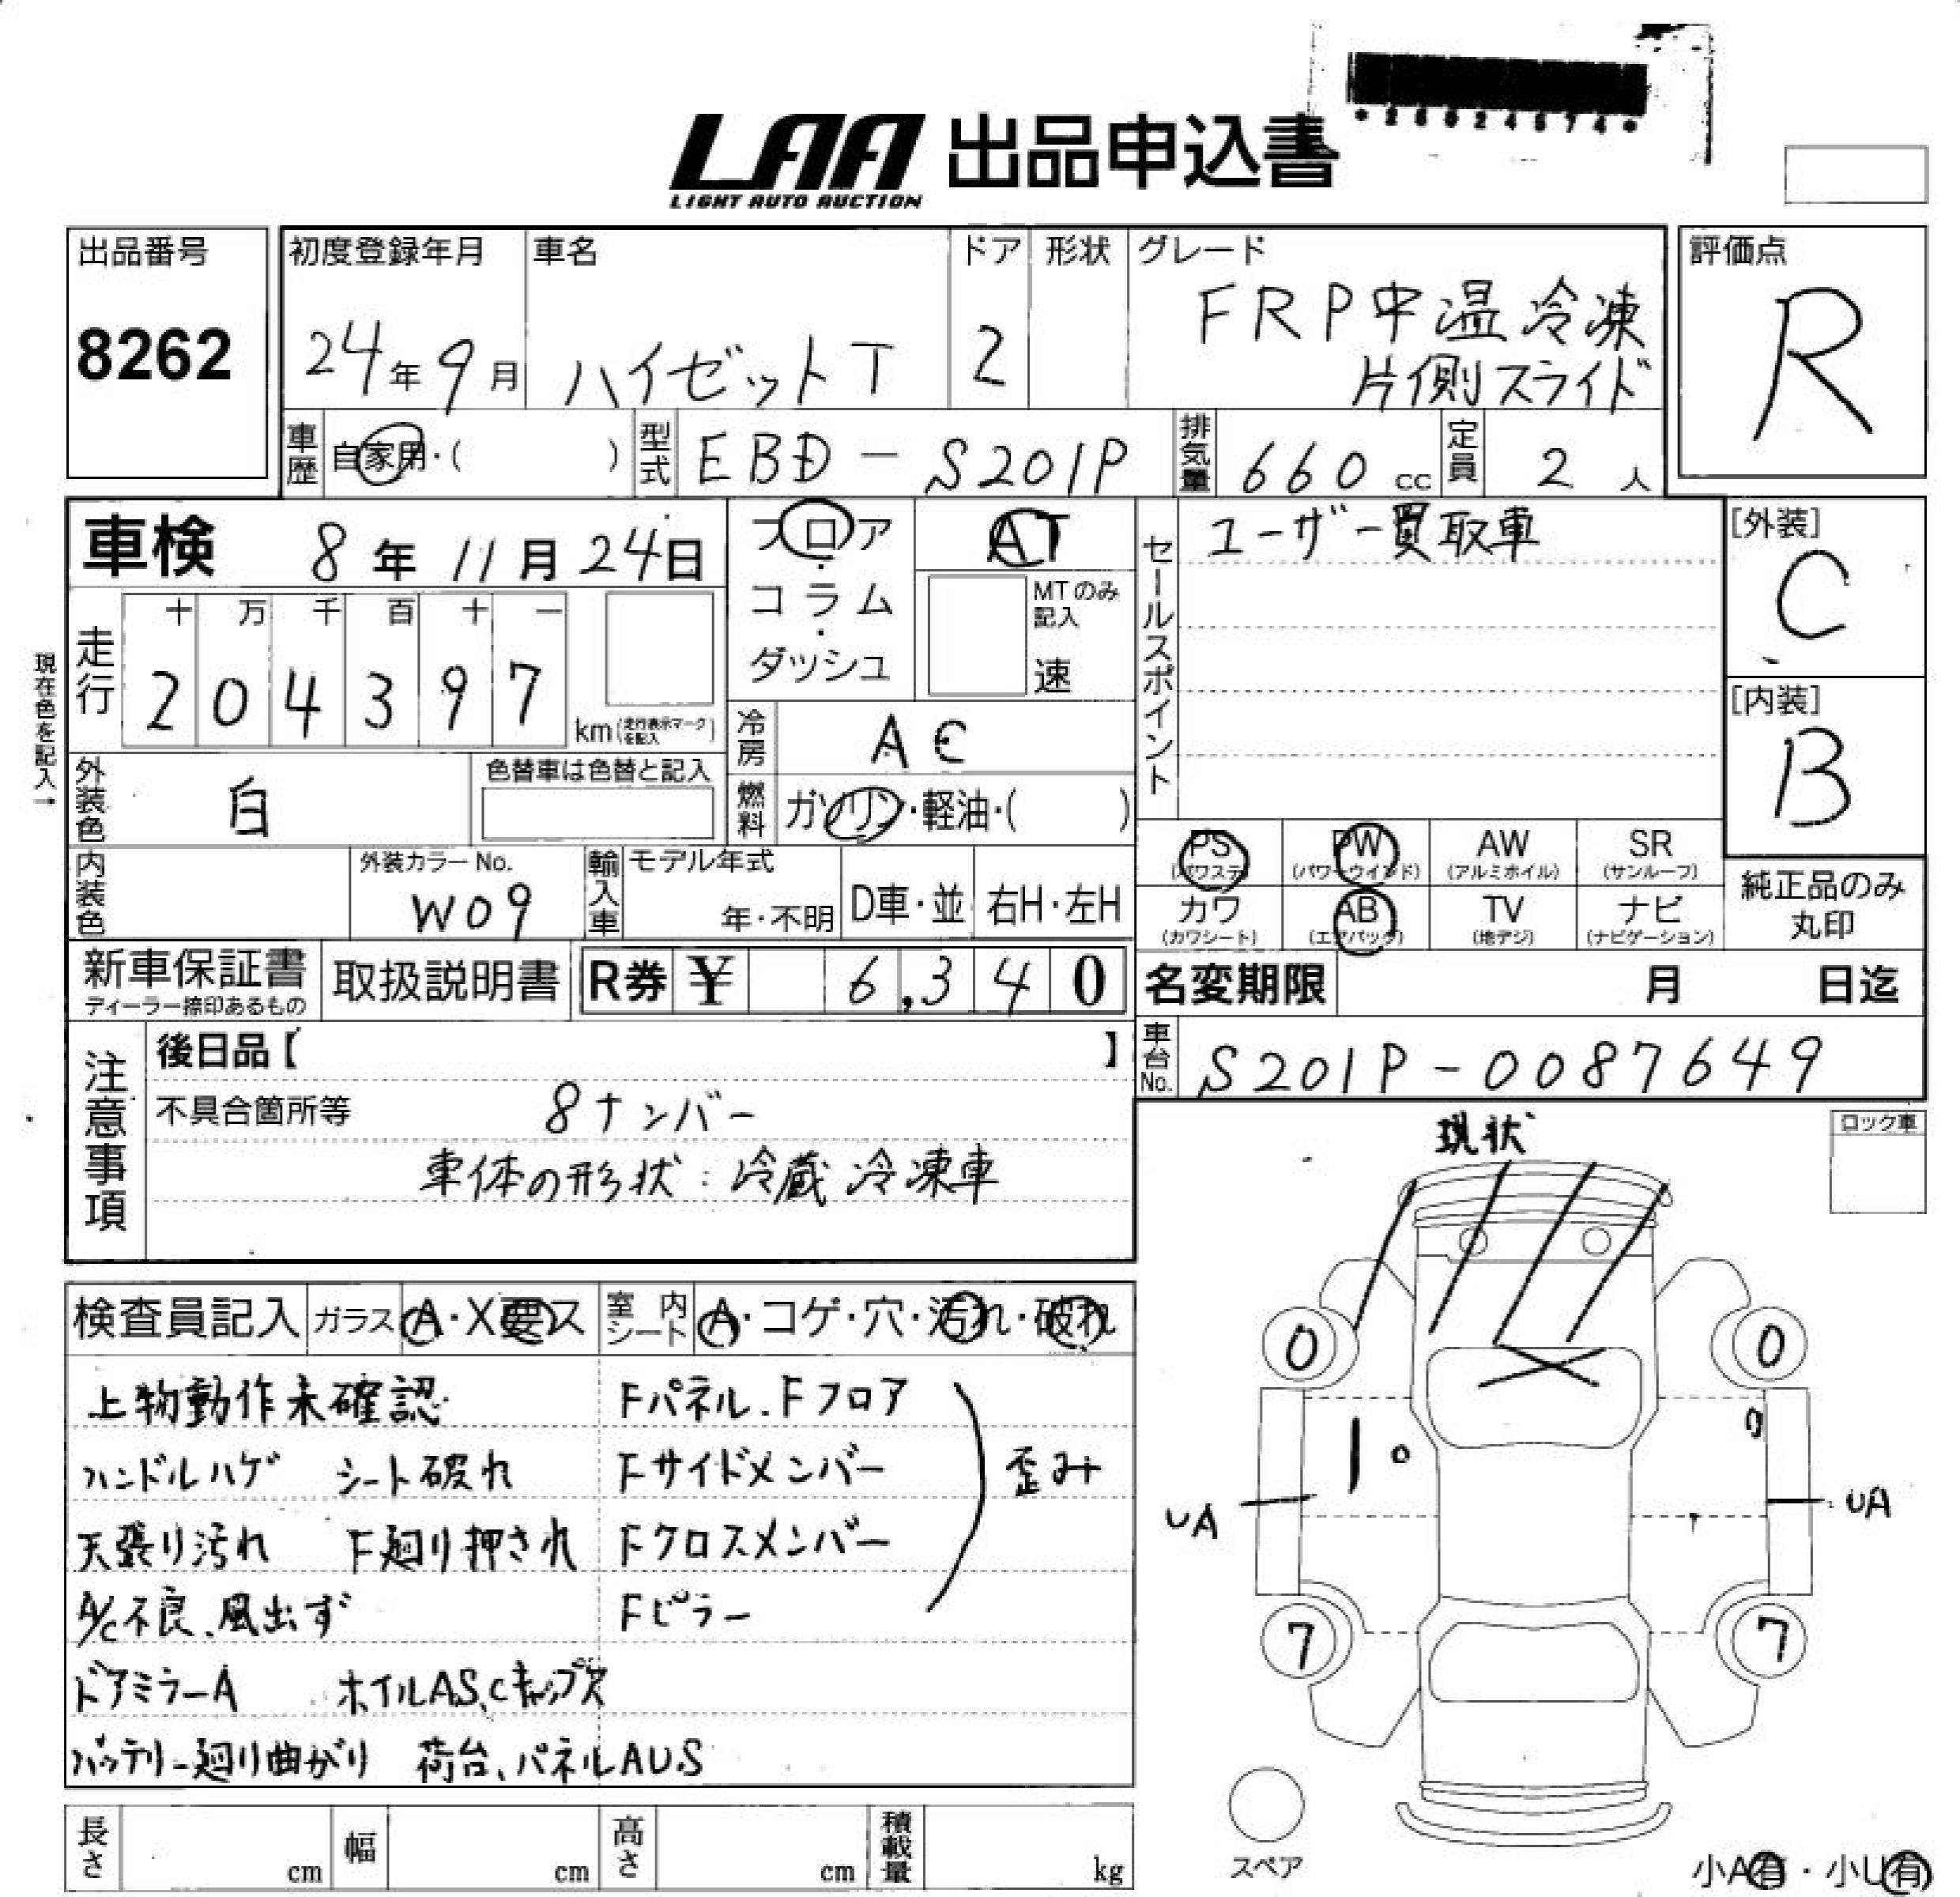 LAA 出品申込書
LIGHT AUTO AUCTION
出品番号
8262
初度登録年月
24年9月
車名
ハイゼットT
ドア
2
形状
グレード
FRP中温冷凍
片側スライド
評価点
R
車歴
自家用・( )
型式
EBD-S201P
排気量
660cc
定員
2人
車検 8年11月24日
フロア・コラム・ダッシュ
AT
MTのみ記入
速
セールスポイント
ユーザー買取車
[外装]
C
[内装]
B
現在色を記入→
走行
十万千百十一
204397
km(走行表示マークを記入)
冷房
AC
燃料
ガソリン・軽油・( )
外装色
白
色替車は色替と記入
内装色
外装カラーNo.
W09
輸入車
モデル年式
年・不明
D車・並
右H・左H
PS
(パワステ)
PW
(パワーウインド)
AW
(アルミホイル)
SR
(サンルーフ)
カワ
(カワシート)
AB
(エアバック)
TV
(地デジ)
ナビ
(ナビゲーション)
純正品のみ
丸印
新車保証書
ディーラー捺印あるもの
取扱説明書
R券 ¥ 6,340
名変期限 月 日迄
車台No.
S201P-0087649
注意事項
後日品【 】
不具合箇所等
8ナンバー
車体の形状:冷蔵冷凍車
現状
ロック車
検査員記入
ガラス A・X要ス
室内シート A・コゲ・穴・汚れ・破れ
上物動作未確認
Fパネル.Fフロア
ハンドルハゲ シート破れ
Fサイドメンバー
歪み
天張り汚れ F廻り押され
Fクロスメンバー
A/C不良、風出ず
Fピラー
ドアミラーA ホイルAS、Cキャップ欠
バッテリー廻り曲がり 荷台、パネルAUS
0
0
UA
UA
7
7
スペア
小A有・小U有
長さ cm
幅 cm
高さ cm
積載量 kg